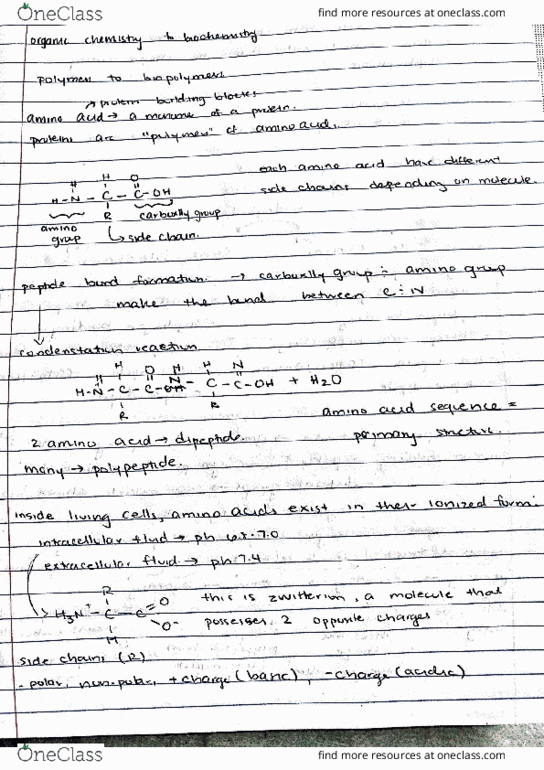 OneClass
find more resources at oneclass.com
organic chemistry to biochemistry
polymers to biopolymers
↗ protein building blocks
amino acid → a monomer of a protein.
proteins are "polymers" of amino acid.
each amino acid have different
side chains depending on molecule.
H O
H
H-N - C - C - OH
R carboxylly group
amino
group
↳ side chain.
peptide bond formation → carboxylly group ÷ amino group
make the bond between C ÷ N
condenstation reaction
H O H H N
H-N - C - C - N - C - C - OH + H2O
R R
amino acid sequence =
primary structure.
2 amino acid → dipeptide.
many → polypeptide.
inside living cells, amino acids exist in their ionized form:
intracellular fluid → ph 7.0
extracellular fluid → ph 7.4
R
H3N+ - C - C O
O-
H
this is zwitterion, a molecule that
possesses 2 opposite charges
side chains (R)
- polar, non-polar, + charge (basic), - charge (acidic)
OneClass
find more resources at oneclass.com